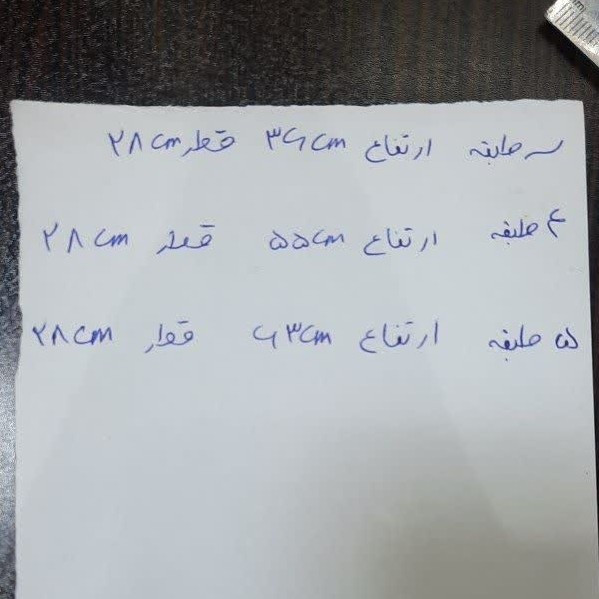 سه طبقه ارتفاع ۳۶cm قطر ۲۸cm
۴ طبقه ارتفاع ۵۵cm قطر ۲۸cm
۵ طبقه ارتفاع ۶۳cm قطر ۲۸cm